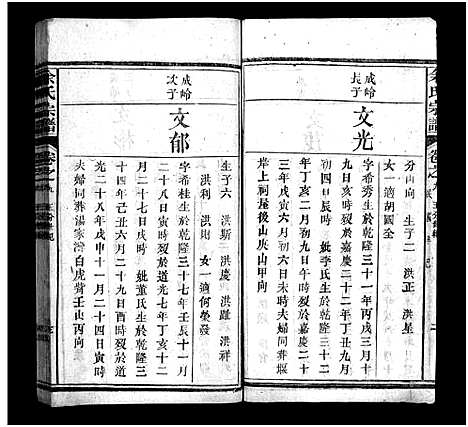 余氏宗譜
卷之九
分山向 生子二 洪正 洪星
女一適胡國全
成岭長子
文光
字希秀生於乾隆三十一年丙戌三月十
九日亥時歿於嘉慶二十二年丁丑九月
初四日辰時 妣李氏生於乾隆三十二
年丁亥二月初九日辰時歿於嘉慶二十
三年戊寅六月初六日未時夫婦同葬堰
岸上祠屋後山庚山甲向
成岭次子
文郁
生子六 洪斯 洪慶 洪雖 洪祥
洪利 洪則 女一適何榮發
字希桂生於乾隆三十七年壬辰十一月
二十八日寅時歿於道光七年丁亥十二
月二十七日戌時 妣董氏生於乾隆三
十四年己丑六月二十九日酉時歿於道
光二十八年戊申十一月二十四日寅時
夫婦同葬湯家灣白虎嘴壬山丙向
余氏宗譜
卷之九